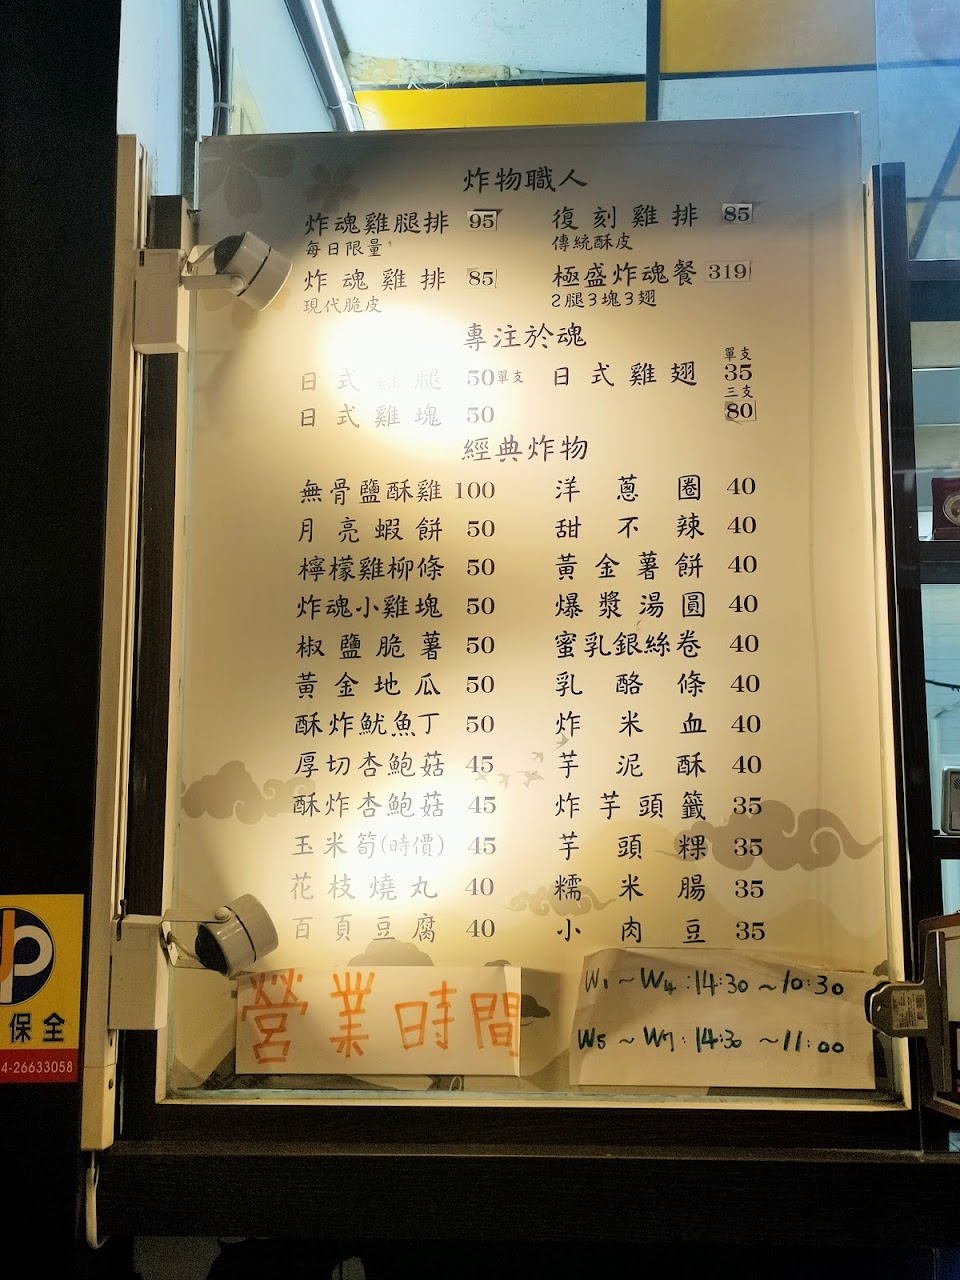 炸物職人
炸魂雞腿排 95 復刻雞排 85
每日限量 傳統酥皮
炸魂雞排 85 極盛炸魂餐 319
現代脆皮 2腿3塊3翅
專注於魂
單支
日式雞腿 50單支 日式雞翅 35
三支
日式雞塊 50 80
經典炸物
無骨鹽酥雞 100 洋蔥圈 40
月亮蝦餅 50 甜不辣 40
檸檬雞柳條 50 黃金薯餅 40
炸魂小雞塊 50 爆漿湯圓 40
椒鹽脆薯 50 蜜乳銀絲卷 40
黃金地瓜 50 乳酪條 40
酥炸魷魚丁 50 炸米血 40
厚切杏鮑菇 45 芋泥酥 40
酥炸杏鮑菇 45 炸芋頭籤 35
玉米筍(時價) 45 芋頭粿 35
花枝燒丸 40 糯米腸 35
百頁豆腐 40 小肉豆 35
營業時間
W1~W4:14:30~10:30
W5~W7:14:30~11:00
保全
4-26633058